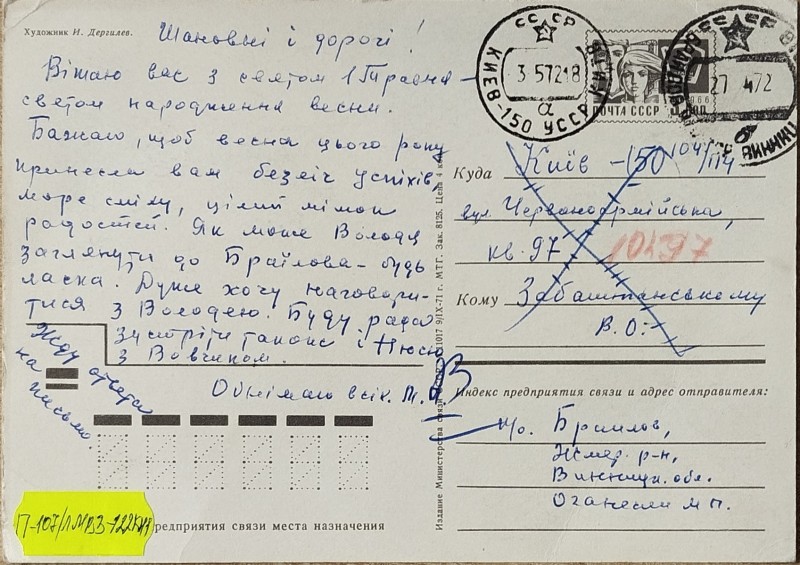 Художник И. Дергилев.
Шановні і дорогі!
Вітаю вас з святом 1 Травня –
святом народження весни.
Бажаю, щоб весна цього року
принесла вам безліч успіхів,
море сміху, цілий мішок
радостей. Як може Володя
заглянути до Браїлова – будь
ласка. Дуже хочу наговори-
тися з Володею. Буду рада
зустріти також і Нюсю
з Вовчиком.
Обнімаю всіх. М.П.
Жду ответа
на письмо.
СССР
КИЕВ-150 УССР
3.5 72 18
а
ПОЧТА СССР
27 4 72
Куда Київ – 150 104/114
вул. Червоноармійська,
кв. 97 10497
Кому Забаштанському
В. О.
Индекс предприятия связи и адрес отправителя:
Браилов,
Жмер. р-н,
Винницк. обл.
Оганесян М П.
Издание Министерства связи СССР 11017 9/IX-71 г. МТГ. Зак. 8125. Цена 4 коп.
П-107/ЛМВЗ-122
предприятия связи места назначения